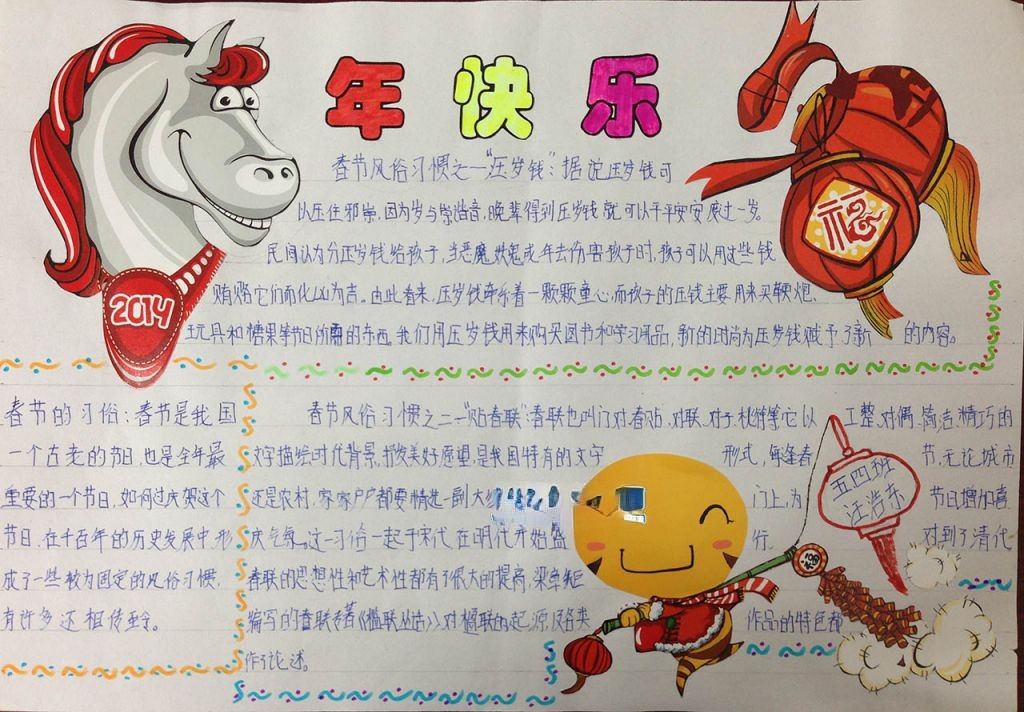 年快乐
2014
福
春节风俗习惯之一"压岁钱":据说压岁钱可
以压住邪祟,因为岁与祟谐音,晚辈得到压岁钱就可以平平安安度过一岁。
民间认为分压岁钱给孩子,当恶魔妖鬼或年去伤害孩子时,孩子可以用这些钱
贿赂它们而化凶为吉。由此看来,压岁钱牵系着一颗颗童心,而孩子的压钱主要用来买鞭炮、
玩具和糖果等节日所需的东西。我们用压岁钱用来购买图书和学习用品,新的时尚为压岁钱赋予了新的内容。
春节的习俗:春节是我国
一个古老的节日,也是全年最
重要的一个节日,如何过庆贺这个
节日,在千百年的历史发展中,形
成了一些较为固定的风俗习惯,
有许多还相传至今。
春节风俗习惯之二一"贴春联":春联也叫门对、春贴、对联、对子、桃符等,它以工整、对偶、简洁、精巧的
文字描绘时代背景,抒发美好愿望,是我国特有的文字形式,每逢春节,无论城市
还是农村,家家户户都要精选一副大门上,为节日增加喜
庆气氛。这一习俗一起于宋代,在明代开始盛行,对到了清代
春联的思想性和艺术性都有了很大的提高,梁章矩
编写的春联专著《楹联丛话》对楹联的起源及各类作品的特色都
作了论述。
五四班
汪浩东
福